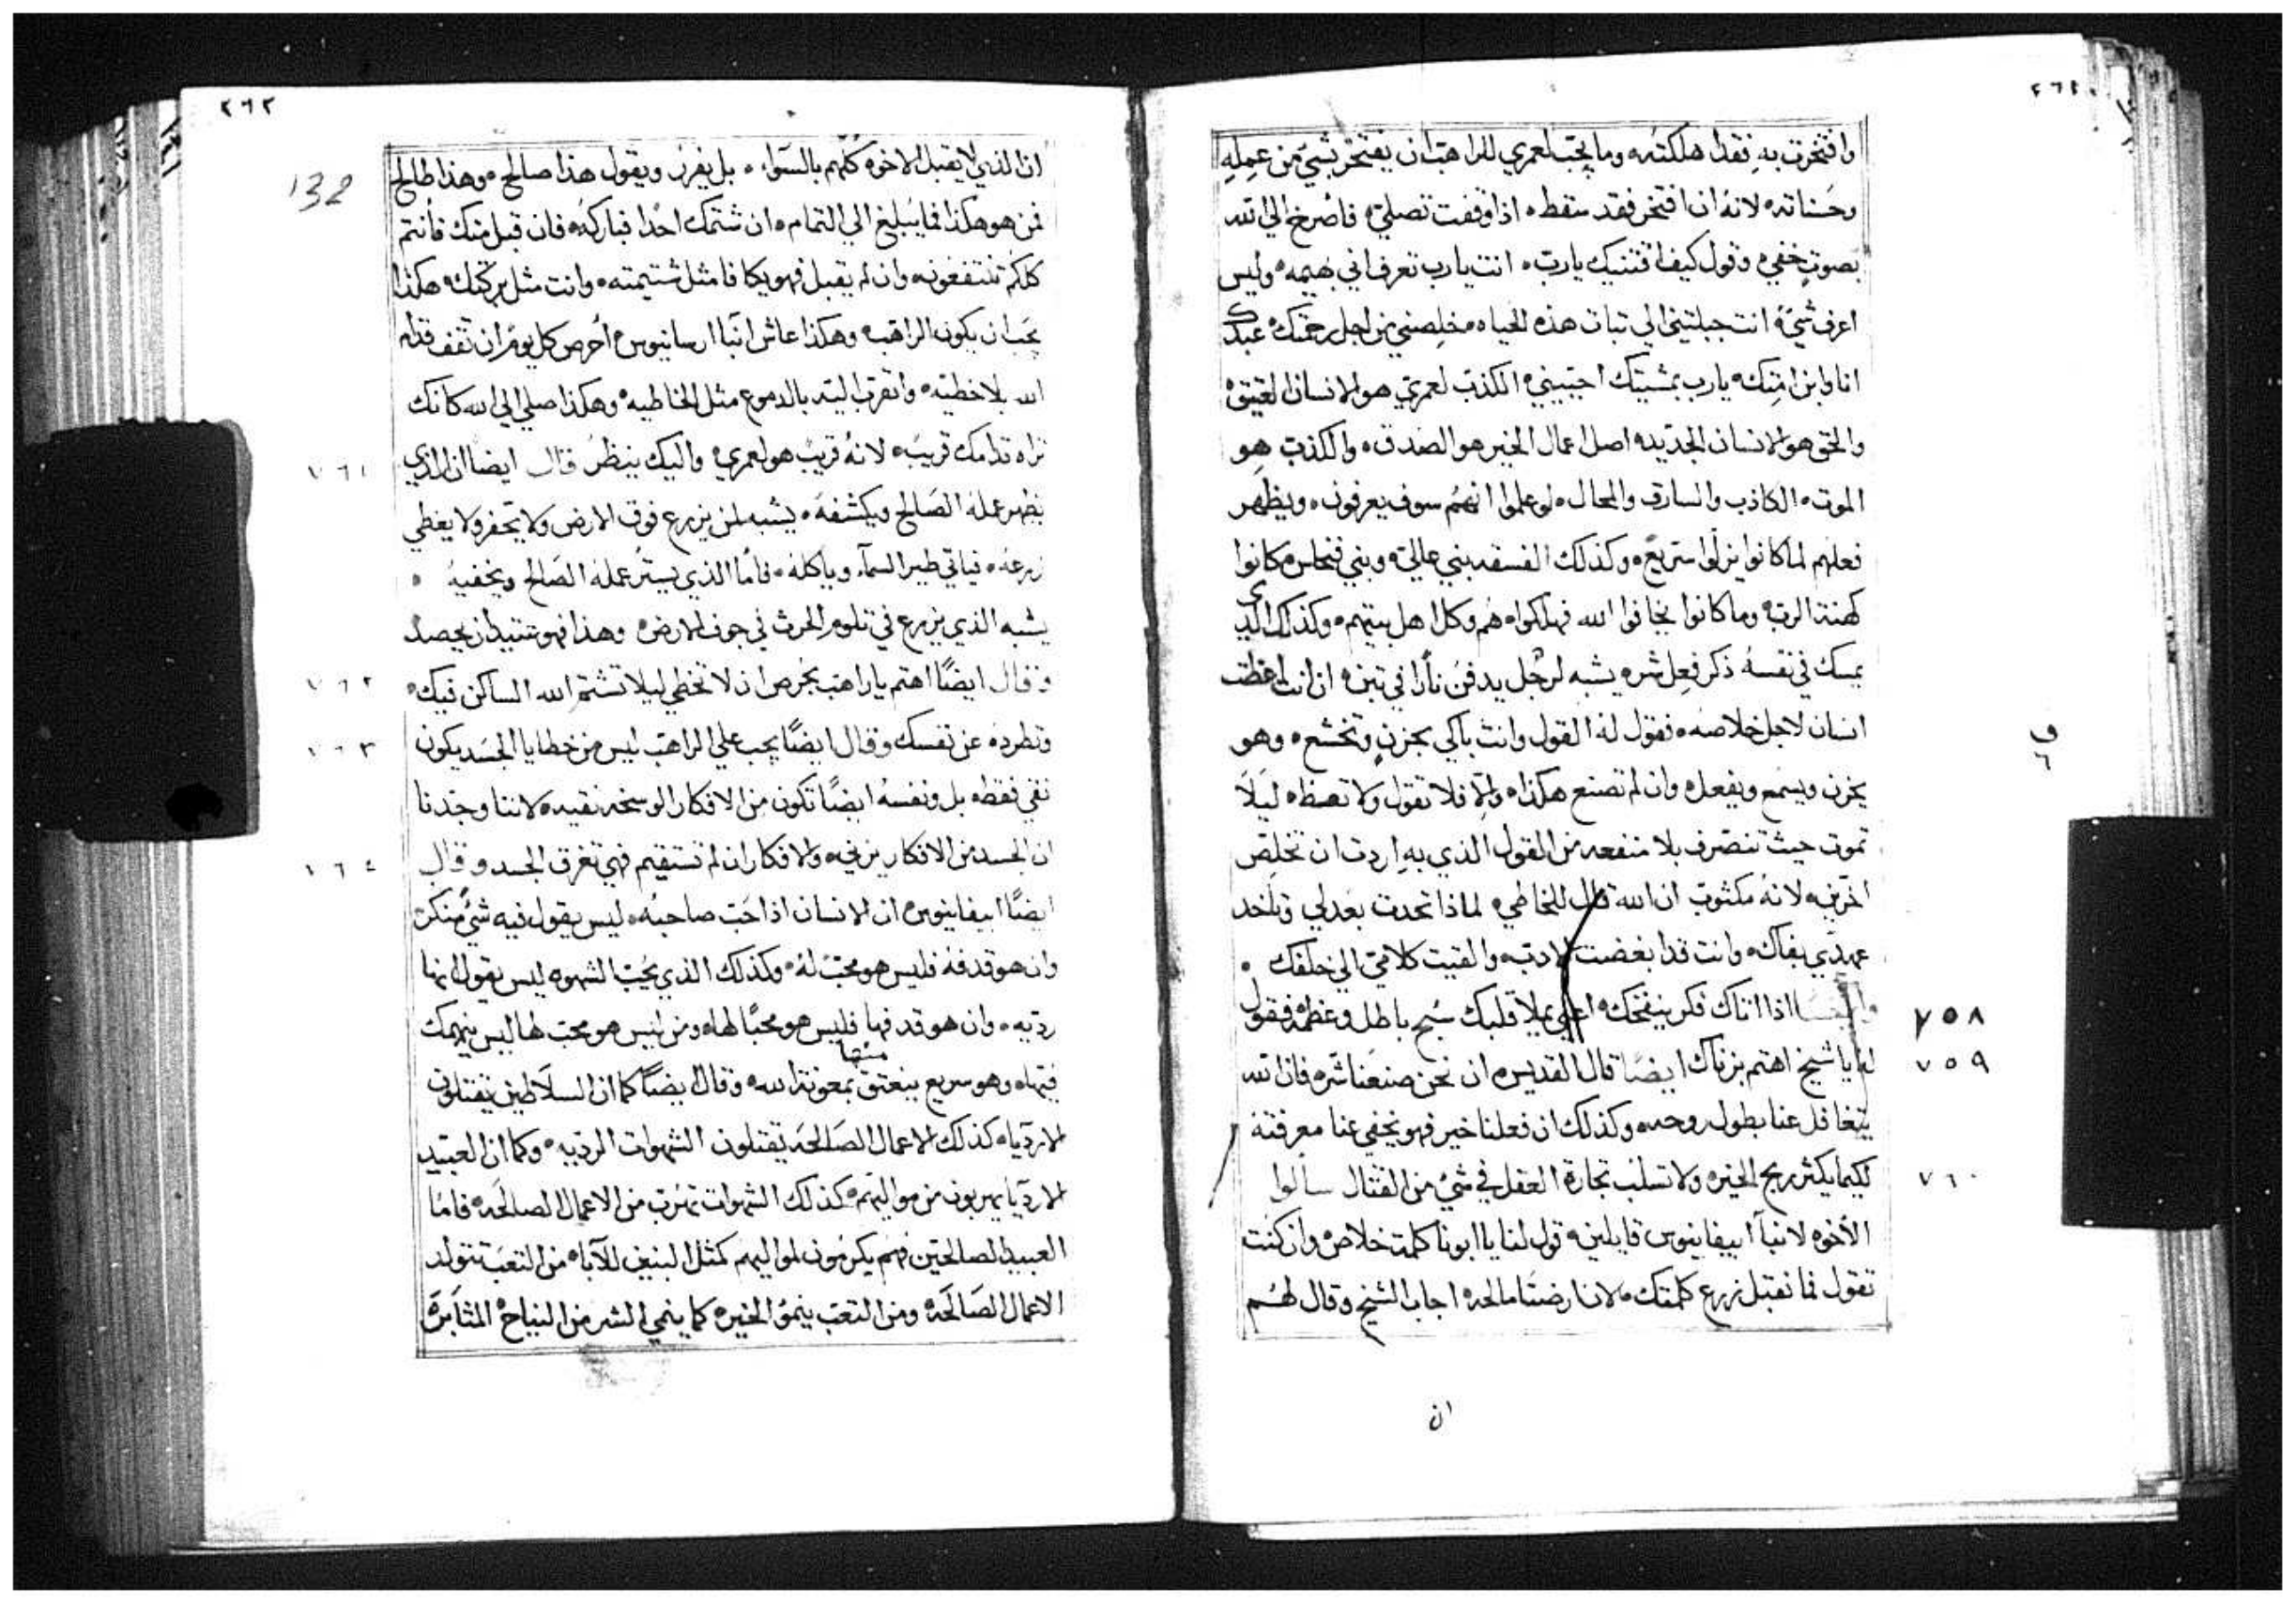 ٢٦١
وافتخرت به فقد اهلكته وما يجب لعمري للراهب ان يفتخر بشي من عمله
وحسناته لانه ان افتخر فقد سقط اذا وقفت تصلي فاصرخ الي الله
بصوت خفي وقول كيف اقتنيك يارب انت يارب تعرف اني بهيمه وليس
اعرف شي انت جبلتيني الي تبات هذه الحياه خلصني من اجل رحمتك عبدك
انا وابن امتك يارب بمشيتك احييني الكذب لعمري هو الانسان العتيق
والحق هو الانسان الجديد اصل اعمال الخير هو الصدق والكذب هو
الموت الكاذب والسارق والمحال لو علموا انهم سوف يعرفون ويظهر
فعلهم لما كانوا يزلوا سريع وكذلك الفسقه بني عالي وبني فنحاس كانوا
كهنة الرب وما كانوا يخافوا الله فهلكوا هم وكل اهل بيتهم وكذلك الدي
يمسك في نفسه ذكر فعل شر يشبه لرجل يدفن نارا في تبن ان انت وعظت
انسان لاجل خلاصه فقول له القول وانت باكي بحزن وتخشع وهو
يحزن ويسمع ويفعل وان لم تصنع هكذا والا فلا تقول ولا تعظ ليلا
تموت حيث تنصرف بلا منفعه من القول الذي به اردت ان تخلص
اخرين لانه مكتوب ان الله قال للخاطي لماذا تحدث بعدلي وتاخد
عهدي بفاك وانت قد ابغضت الادب والقيت كلامي الي خلفك
وايضا اذا اتاك فكر ينفخك اعني يملا قلبك سبح باطل وعظمه فقول ٧٥٨
له يا شيخ اهتم بزناك ايضا قال القديس ان نحن صنعنا شر فان الله ٧٥٩
يتغافل عنا بطول روحه وكذلك ان فعلنا خير فهو يخفي عنا معرفته
لكيما يكثر ربح الخير ولا تسلب تجارة العقل في شي من القتال سالوا ٧٦٠
الاخوه لانبا ابيفانيوس قايلين قول لنا يا ابونا كلمت خلاص وان كنت
تقول فما نقبل زرع كلمتك لان ارضنا مالحه اجاب الشيخ وقال لهم
ان
٢٦٢
132
ان الذي لا يقبل الاخوه كلهم بالسوا بل يفرز ويقول هذا صالح وهذا طالح
فمن هو هكذا فما يبلغ الي التمام ان شتمك احدا فباركه فان قبل منك فانتم
كلكم تنتفعون وان لم يقبل فهو يكافا مثل شتيمته وانت مثل بركتك هكذا
يجب ان يكون الراهب وهكذا عاش انبا ارسانيوس احرص كل يوم ان تقف قدام
الله بلا خطيه وانقرب اليه بالدموع مثل الخاطيه وهكذا صلي الي الله كانك
تراه قدامك قريب لانه قريب هو لعمري واليك ينظر قال ايضا ان الذي ٧٦١
يظهر عمله الصالح ويكشفه يشبه لمن يزرع فوق الارض ولا يحفر ولا يغطي
زرعه فياتي طير السما وياكله فاما الذي يستر عمله الصالح ويخفيه
يشبه الذي يزرع في تلوم الحرث في جوف الارض وهذا فهو عتيد ان يحصد
وقال ايضا اهتم يا راهب بحرص ان لا تخطي ليلا تشتم الله الساكن فيك ٧٦٢
وتطرده عن نفسك وقال ايضا يجب علي الراهب ليس من خطايا الجسد يكون ٧٦٣
نقي فقط بل ونفسه ايضا تكون من الافكار الوسخه نقيه لاننا وجدنا
ان الجسد من الافكار يزني والافكار ان لم تستقيم فهي تغرق الجسد وقال ٧٦٤
ايضا ابيفانيوس ان الانسان اذا حب صاحبه ليس يقول فيه شي منكر
وان هو قدفه فليس هو محب له وكذلك الذي يحب الشهوه ليس يقول انها
رديه وان هو قدفها فليس هو محبا لها ومن ليس هو محب لها ليس ينهمك
فيها وهو سريع ينعتق منها بمعونة الله وقال ايضا كما ان السلاطين يقتلون
الارديا كذلك الاعمال الصالحه يقتلون الشهوات الرديه وكما ان العبيد
الارديا يهربون من مواليهم كذلك الشهوات تهرب من الاعمال الصالحه فاما
العبيد الصالحين فهم يكرمون لمواليهم كمثل البنين للآبا من التعب تتولد
الاعمال الصالحه ومن التعب ينمو الخير كما ينمي الشر من النياح المثابره